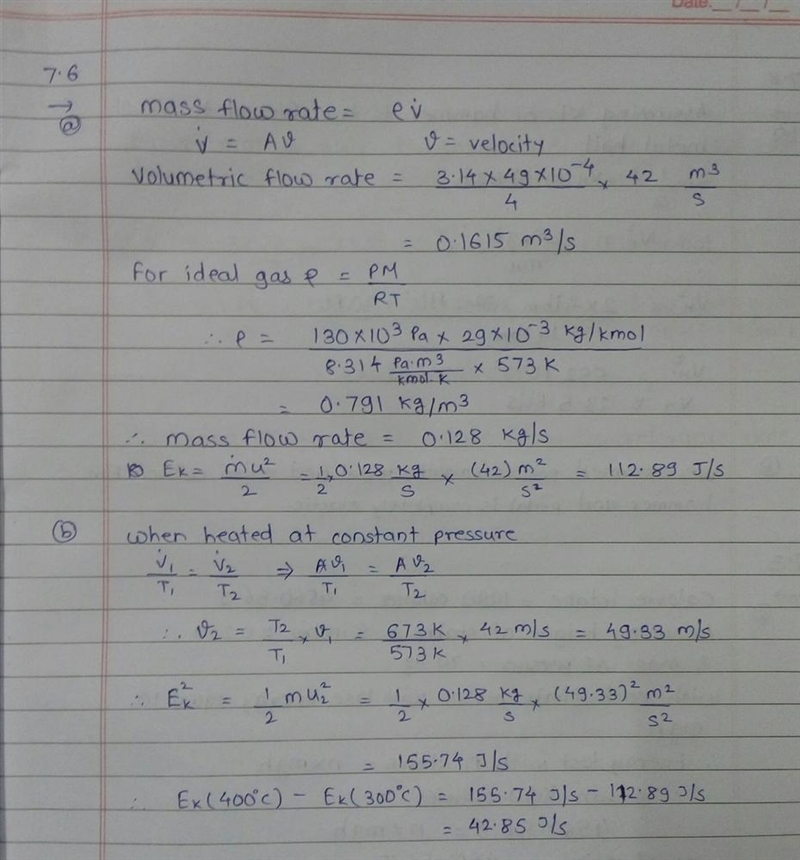 Date:__/__/__
7.6
→
ⓐ
mass flow rate = ρV̇
V̇ = Aϑ    ϑ = velocity
Volumetric flow rate = 3.14 × 49 × 10⁻⁴ / 4 × 42 m³/s
= 0.1615 m³/s
for ideal gas ρ = PM / RT
∴ ρ = 130 × 10³ Pa × 29 × 10⁻³ kg/kmol / 8.314 Pa·m³/kmol·K × 573 K
= 0.791 kg/m³
∴ mass flow rate = 0.128 kg/s
Ek = ṁu²/2 = 1/2 × 0.128 kg/s × (42) m²/s² = 112.89 J/s
ⓑ when heated at constant pressure
V̇₁/T₁ = V̇₂/T₂ ⇒ Aϑ₁/T₁ = Aϑ₂/T₂
∴ ϑ₂ = T₂/T₁ × ϑ₁ = 673 K/573 K × 42 m/s = 49.33 m/s
∴ E²k = 1/2 mu₂² = 1/2 × 0.128 kg/s × (49.33)² m²/s²
= 155.74 J/s
∴ Ek (400°C) - Ek (300°C) = 155.74 J/s - 112.89 J/s
= 42.85 J/s